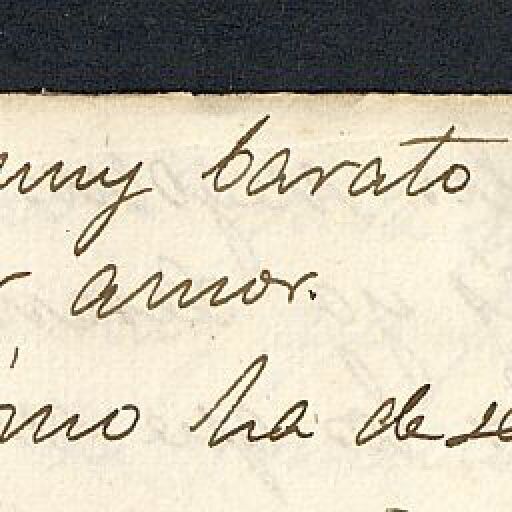 muy barato
r amor.
ómo ha de se